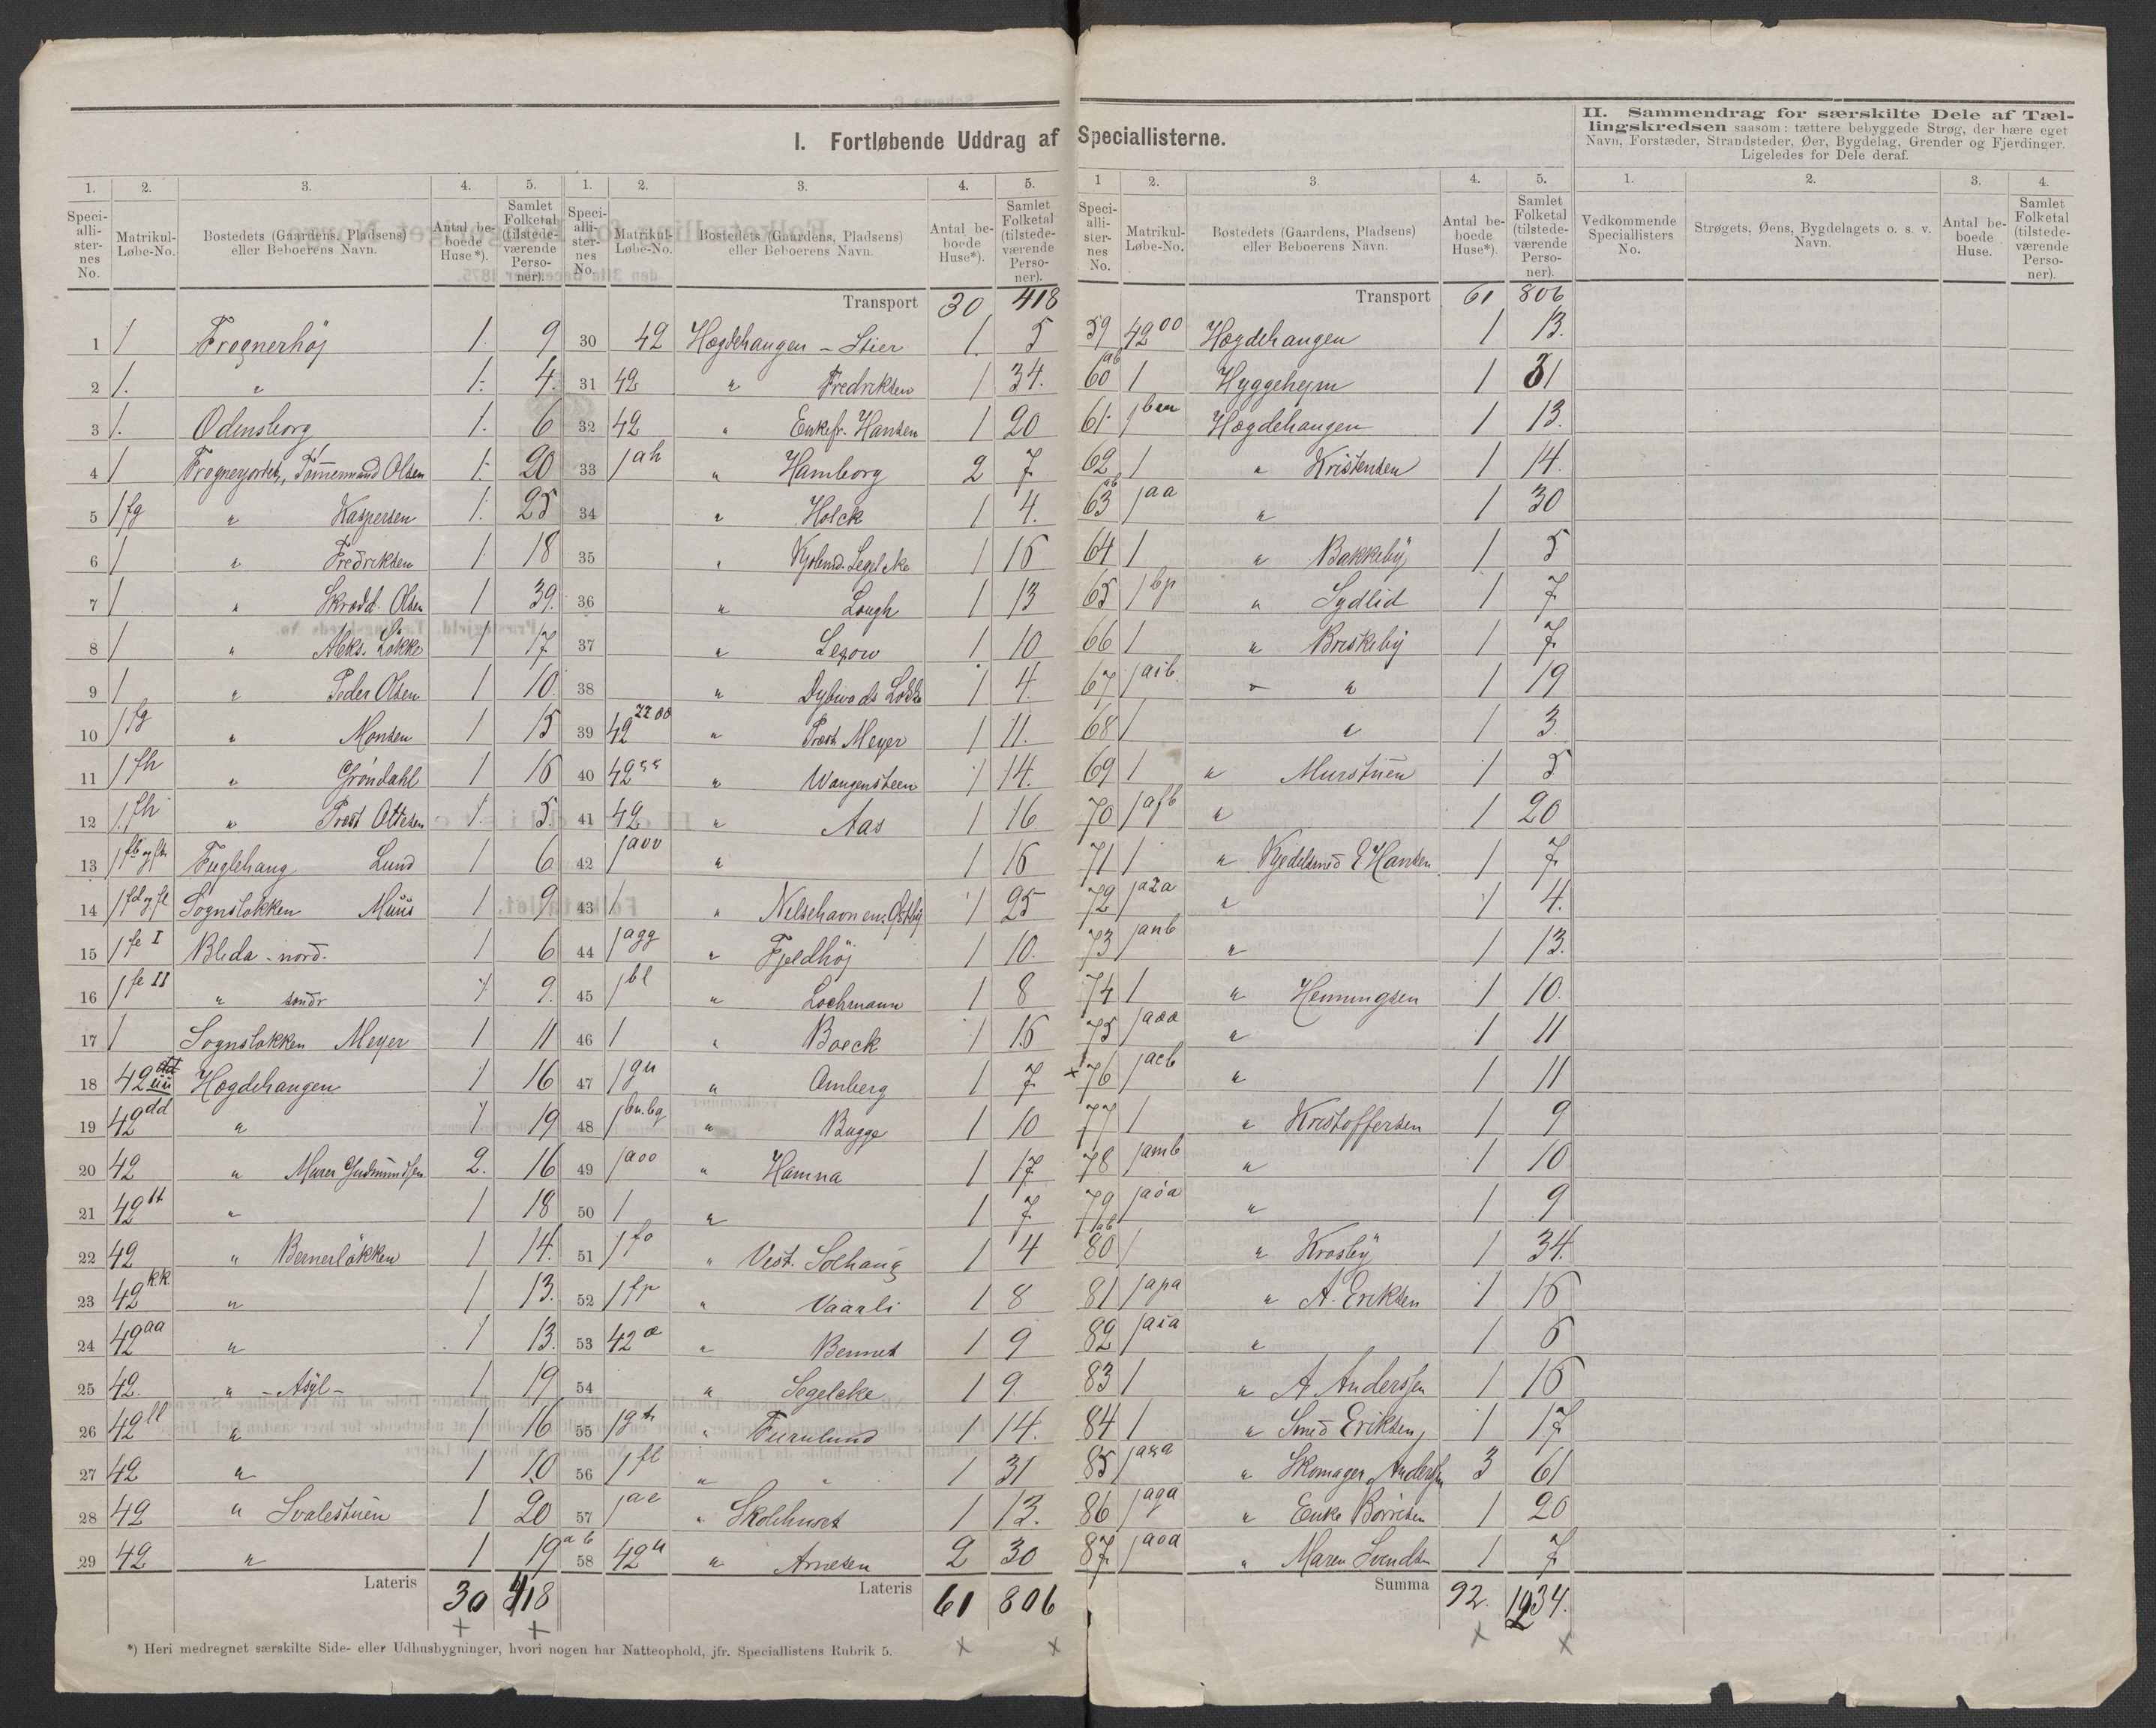 I. Fortløbende Uddrag af Speciallisterne.
II. Sammendrag for særskilte Dele af Tæl-
lingskredsen saasom: tættere bebyggede Strøg, der bære eget
Navn, Forstæder, Strandsteder, Øer, Bygdelag, Grender og Fjerdinger.
Ligeledes for Dele deraf.
1. 2. 3. 4. 5.
Speci-alli-ster-nes No. Matrikul-Løbe-No. Bostedets (Gaardens, Pladsens) eller Beboerens Navn. Antal be-boede Huse*). Samlet Folketal (tilstede-værende Perso-ner).
1 1 Frognerhöj 1. 9
2 1. " 1. 4.
3 1. Odinsborg 1. 6
4 1 Frognerjordet, Tömmermand Olsen 1. 20
5 1 fg " Kaspersen 1. 25
6 1 " Fredriksen 1. 18
7 1 " Skrædd. Olsen 1 39.
8 1 " Aleks. Lökke 1 17
9 1 " Peder Olsen 1 10.
10 1 fg " Monsen 1 15
11 1 fh " Gröndahl 1 16
12 1. fh " Præst Ottesen 1. 5.
13 1 Fuglehaug Lund 1 6
14 1 fd og fl Sognsløkken Muus 1 9
15 1 fe I Blida - nord. 1 6
16 1 fe II " söndr 1 9.
17 1 Sognsløkken Meyer 1 11
18 42 uu Hægdehaugen 1 16
19 42 dd " 1 19
20 42 " Murer Gudmundsen 2. 16
21 42 tt " 1 18
22 42 " Bernerlökken 1 14.
23 42 kk " 1 13.
24 42 aa " 1 13.
25 42. " - Asyl - 1 19
26 42 ll " 1 16
27 42 " 1 10
28 42 " Svalestuen 1 20
29 42 " 1 19
Lateris 30 418
*) Heri medregnet særskilte Side- eller Udhusbygninger, hvori nogen har Natteophold, jfr. Speciallistens Rubrik 5.
1. 2. 3. 4. 5.
Speci-alli-ster-nes No. Matrikul-Løbe-No. Bostedets (Gaardens, Pladsens) eller Beboerens Navn. Antal be-boede Huse*). Samlet Folketal (tilstede-værende Perso-ner).
Transport 30 418
30 42 Hægdehaugen - Stier 1. 5
31 42 " Fredriksen 1 34.
32 42 " Enkefr. Hansen 1 20
33 1 ah " Hamborg 2 7
34 " Holck 1 4.
35 " Kjøbmd. Segelcke 1 16
36 " Lough 1 13
37 " Lezow 1 10
38 " Dybwads Løkke 1 4.
39 42 " Præst Meyer 1 11.
40 42 " Wangensteen 1 14.
41 42 " Aas 1 16
42 1 aov " 1 16
43 1 " 1 25
44 1 agg " Fjeldhöj 1 10.
45 1 bl " Lochmann 1 8
46 1 " Boeck 1 16
47 1 gu " Omberg 1 7
48 1 bn.bq " Bugge 1 10
49 1 aoo " Hamna 1 17
50 1 " 1 7
51 1 fo " Vest. Solhaug 1 4
52 1 fp " Vaarli 1 8
53 42 æ " Bennet 1 9
54 " Segelcke 1 9.
55 1 " Furulund 1 14.
56 1 fl " " 1 31
57 1 ae " Skolehuset 1 13.
ab 58 42 u " Arnesen 2 30
Lateris 61 806
1 2. 3. 4. 5.
Speci-alli-ster-nes No. Matrikul-Løbe-No. Bostedets (Gaardens, Pladsens) eller Beboerens Navn. Antal be-boede Huse*). Samlet Folketal (tilstede-værende Perso-ner).
Transport 61 806
59 42 oo Hægdehaugen 1 13.
60 ab 1 Hyggehejm 1 31
61. 1 Hægdehaugen 1 13.
62 1 " Kristensen 1 14.
63 ab 1 aa " 1 30
64 1 " Bakkeby 1 5
65 1 bp " Sydlid 1 7
66 1 " Briskeby 1 7
67 1 aib " " 1 19
68 1 " 1 3.
69 1 " Murstuen 1 5
70 1 afb " 1 20
71 1 " Kjedelsmed E Hansen 1 7
72 1 aza " 1 4.
73 1 anb " 1 13.
74 1 " Henningsen 1 10.
75 1 aoo " 1 11
76 1 acb " 1 11
77 1 " Kristoffersen 1 9
78 1 amb " 1 10
79 1 aöa " 1 9
80 ab 1 " Krosby 1 34.
81 1 apa " A. Eriksen 1 16
82 1 aia " 1 6
83 1 " A Anderssen 1 16
84 1 " Smed Eriksen 1 17
85 1 " Skomager Anderssen 3 61
86 1 aga " Enke Börresen 1 20
87 1 aoa " Maren Svendsen 1 7
Summa 92. 1234.
1. 2. 3. 4.
Vedkommende Speciallisters No. Strøgets, Øens, Bygdelagets o. s. v. Navn. Antal be-boede Huse. Samlet Folketal (tilstede-værende Perso-ner).